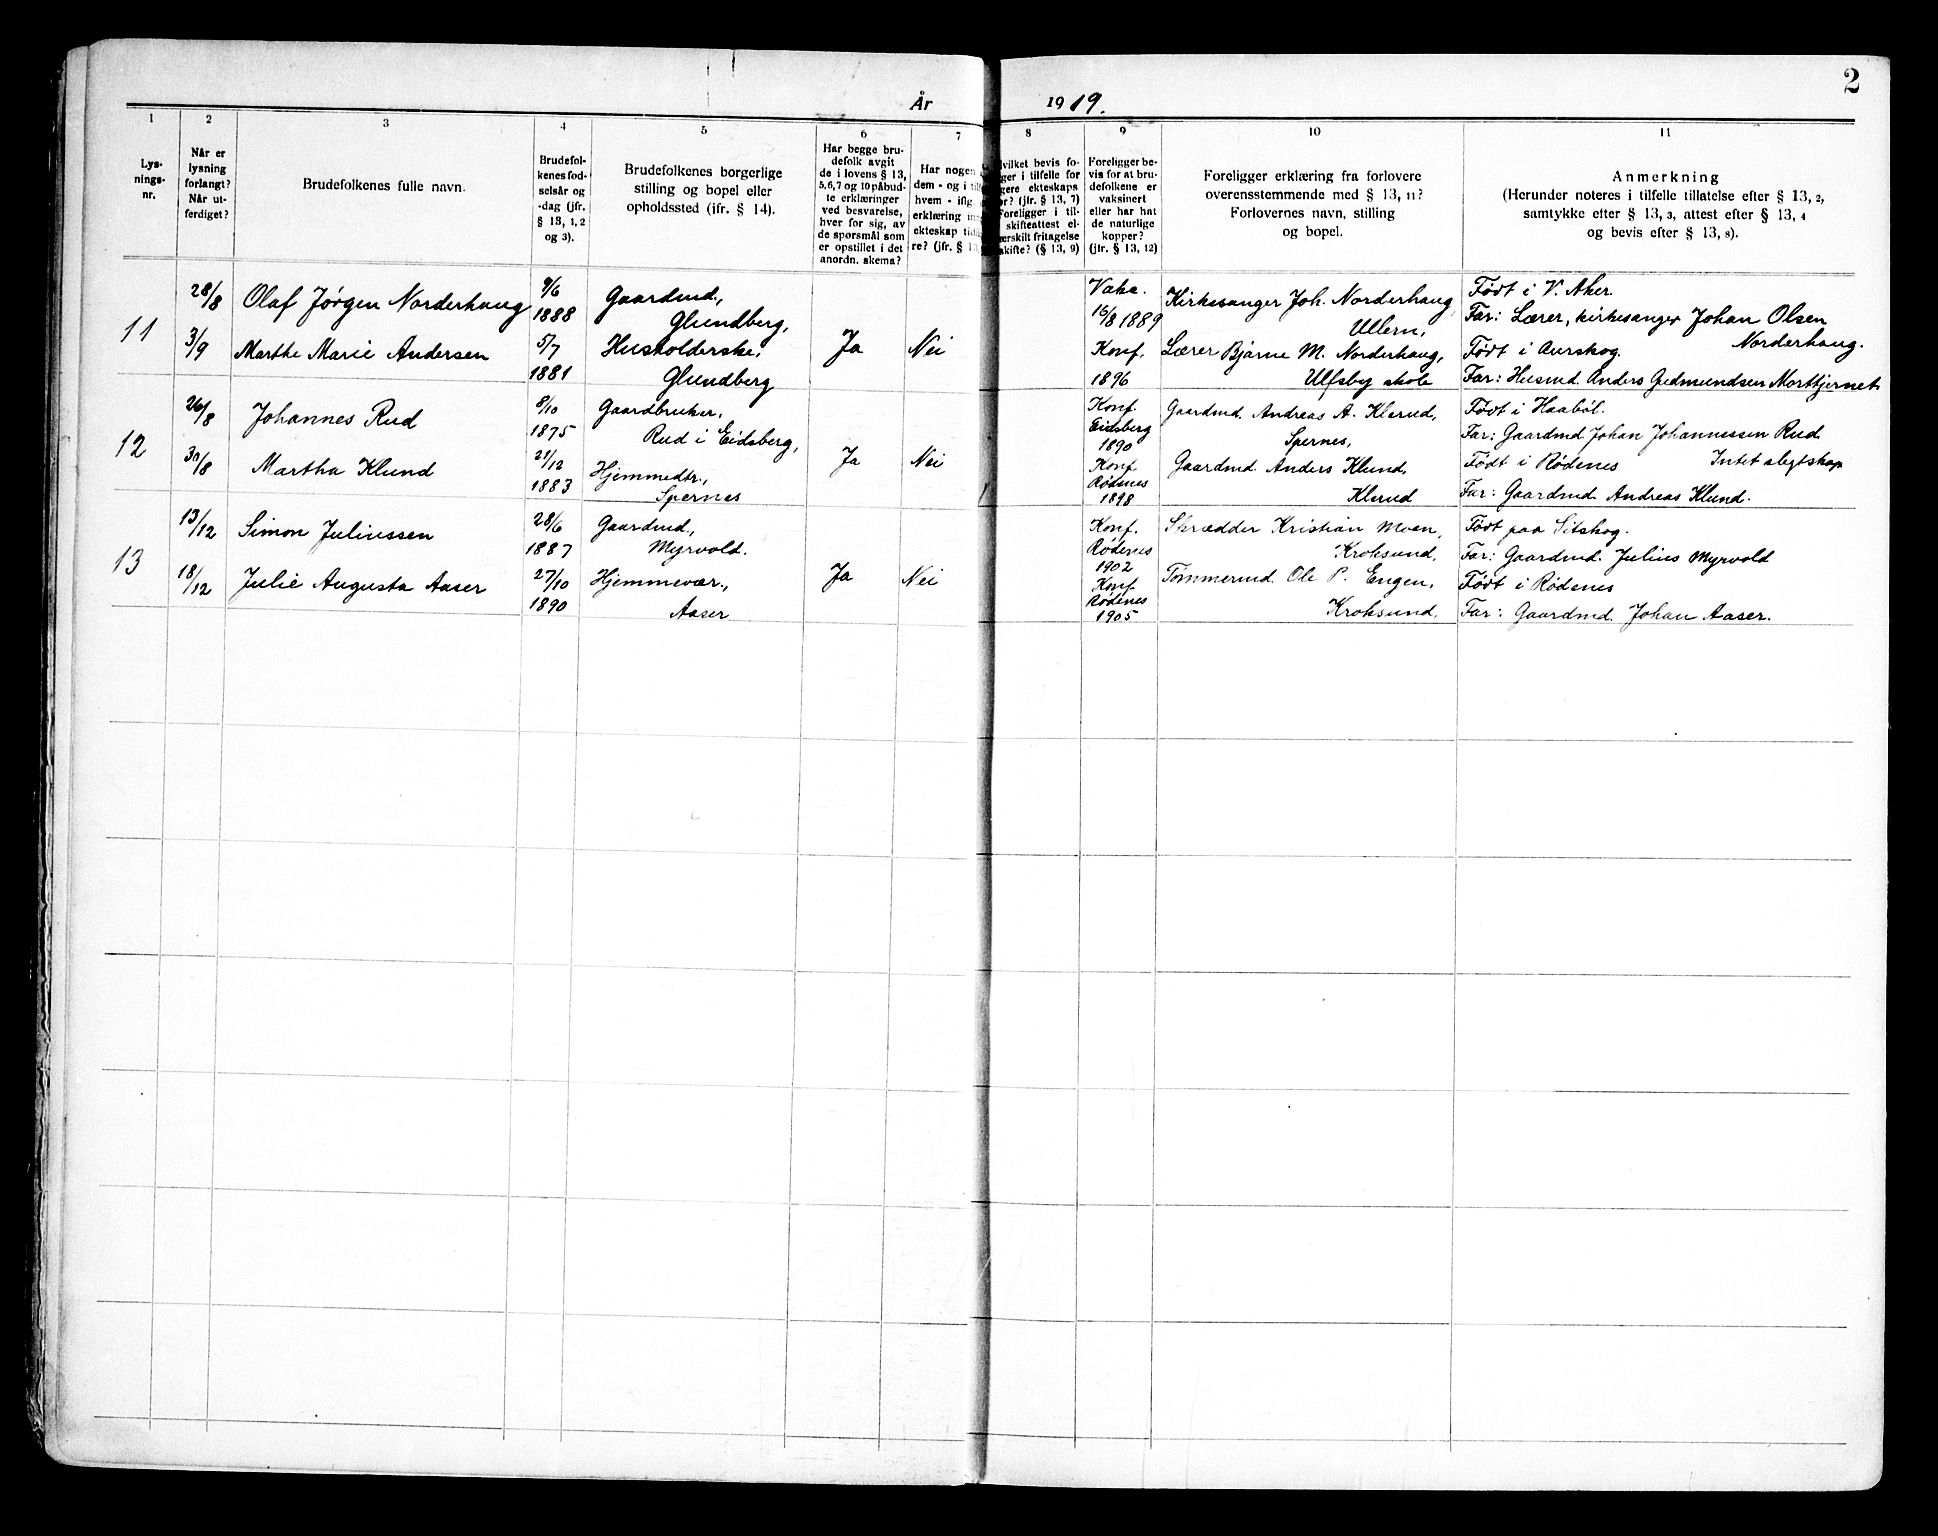 2
År 1919.
1 2 3 4 5 6 7 8 9 10 11
Lys-
nings-
nr.
Når er
lysning
forlangt?
Når ut-
ferdiget?
Brudefolkenes fulle navn.
Brudefol-
kenes fød-
selsår og
-dag (jfr.
§ 13, 1, 2
og 3).
Brudefolkenes borgerlige
stilling og bopel eller
opholdssted (jfr. § 14).
Har begge bru-
defolk avgit
de i lovens § 13,
5,6,7 og 10 påbud-
te erklæringer
ved besvarelse,
hver for sig, av
de spørsmål som
er opstillet i det
anordn. skema?
Har nogen
dem - og i
hvem -
erklæring
ekteskap
re? (jfr. §
hvilket bevis fo-
ger i tilfelle for
gere ekteskaps
(jfr. § 13, 7)
Foreligger i til-
skifteattest el-
særskilt fritagelse
skifte? (§ 13, 9)
Foreligger be-
vis for at bru-
defolkene er
vaksinert
eller har hat
de naturlige
kopper?
(jfr. § 13, 12)
Foreligger erklæring fra forlovere
overensstemmende med § 13, 11?
Forlovernes navn, stilling
og bopel.
Anmerkning
(Herunder noteres i tilfelle tillatelse efter § 13, 2,
samtykke efter § 13, 3, attest efter § 13, 4
og bevis efter § 13, 8).
11
28/8 Olaf Jørgen Norderhaug 9/6 1888 Gaardmd.,
Glundberg,
Vakc.
16/8 1889
Kirkesanger Joh. Norderhaug
Ullern,
Født i V. Aker.
Far: Lærer, kirkesanger Johan Olsen
Norderhaug.
3/9 Marthe Marie Andersen 5/7 1881 Husholderske,
Glundberg
Ja Nei
Konf.
1896
Lærer Bjarne M. Norderhaug,
Ulfsby skole
Født i Aurskog.
Far: Husmd. Anders Gudmundsen Morttjernet
12
26/8 Johannes Rud 8/10 1875 Gaardbruker,
Rud i Eidsberg,
Konf.
Eidsberg
1890
Gaardmd. Andreas A. Klerud,
Spernes,
Født i Haabøl.
Far: Gaardmd Johan Johannessen Rud
30/8 Martha Klund 21/12 1883 Hjemmedtr.,
Spernes
Ja Nei
Konf
Rødenes
1898
Gaardmd. Anders Klund,
Klerud
Født i Rødenes Intet slegtskap
Far: Gaardmd. Andreas Klund.
13
13/12 Simon Juliussen 28/6 1887 Gaardmd,
Myrvold.
Konf.
Rødenes
1902
Skrædder Kristian Moen,
Kroksund,
Født paa Sitskog.
Far: Gaardmd. Julius Myrvold
18/12 Julie Augusta Aaser 27/10 1890 Hjemmevær.,
Aaser
Ja Nei
Konf.
Rødenes
1905
Tømmermd. Ole P. Engen,
Kroksund.
Født i Rødenes
Far: Gaardmd. Johan Aaser.